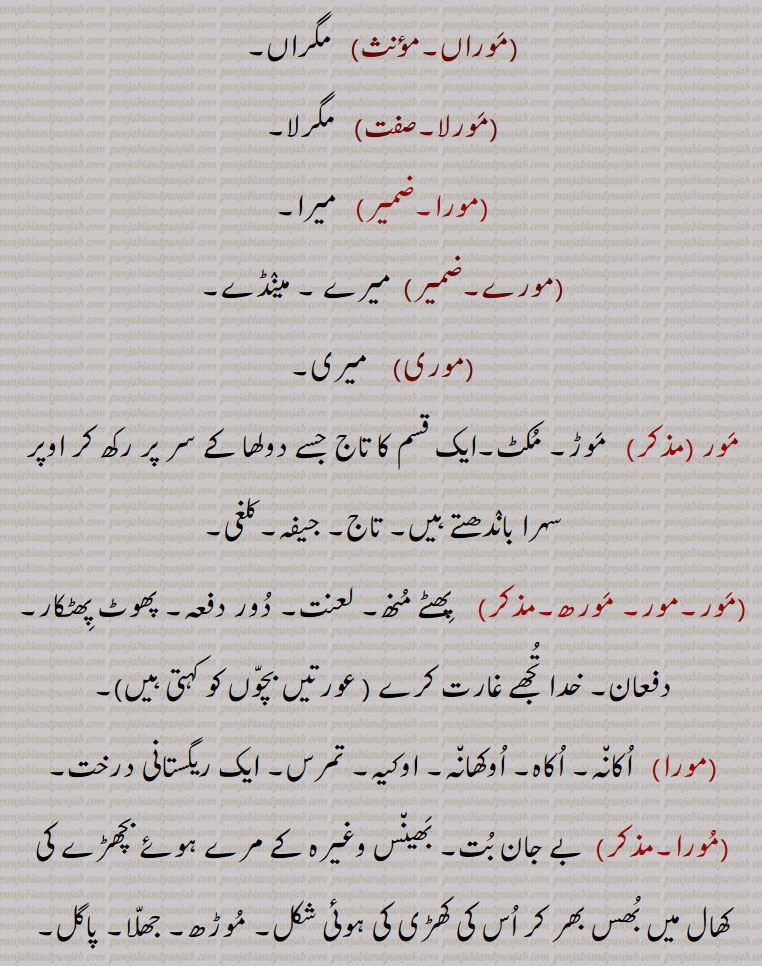 (مَوراں۔مؤنث) مگراں۔
(مَورلا۔صفت) مگرلا۔
(مورا۔ضمیر) میرا۔
(مورے۔ضمیر) میرے ۔ مینْڈے۔
(موری) میری۔
مَور (مذکر) مَوڑ۔ مُکٹ۔ایک قسم کا تاج جسے دولھا کے سر پر رکھ کر اوپر
سہرا بانْدھتے ہیں۔ تاج۔ جیفہ۔ کلغی۔
(مَور۔مور۔ مَورھ۔مذکر) پِھٹے مُنھ۔ لعنت۔ دُور دفعہ۔ پھوٹ پِھٹکار۔
دفعان۔ خدا تُجھے غارت کرے (عورتیں بچّوں کو کہتی ہیں)۔
(مورا) اُکانّہ۔ اُکاہ۔ اُوکھانّہ۔ اوکیہ۔ تمرس۔ ایک ریگستانی درخت۔
(مُورا۔مذکر) بے جان بُت۔ بَھینّس وغیرہ کے مرے ہوئے بچھڑے کی
کھال میں بُھس بھر کر اُس کی کھڑی کی ہوئی شکل۔ مُوڑھ۔ جھلّا۔ پاگل۔